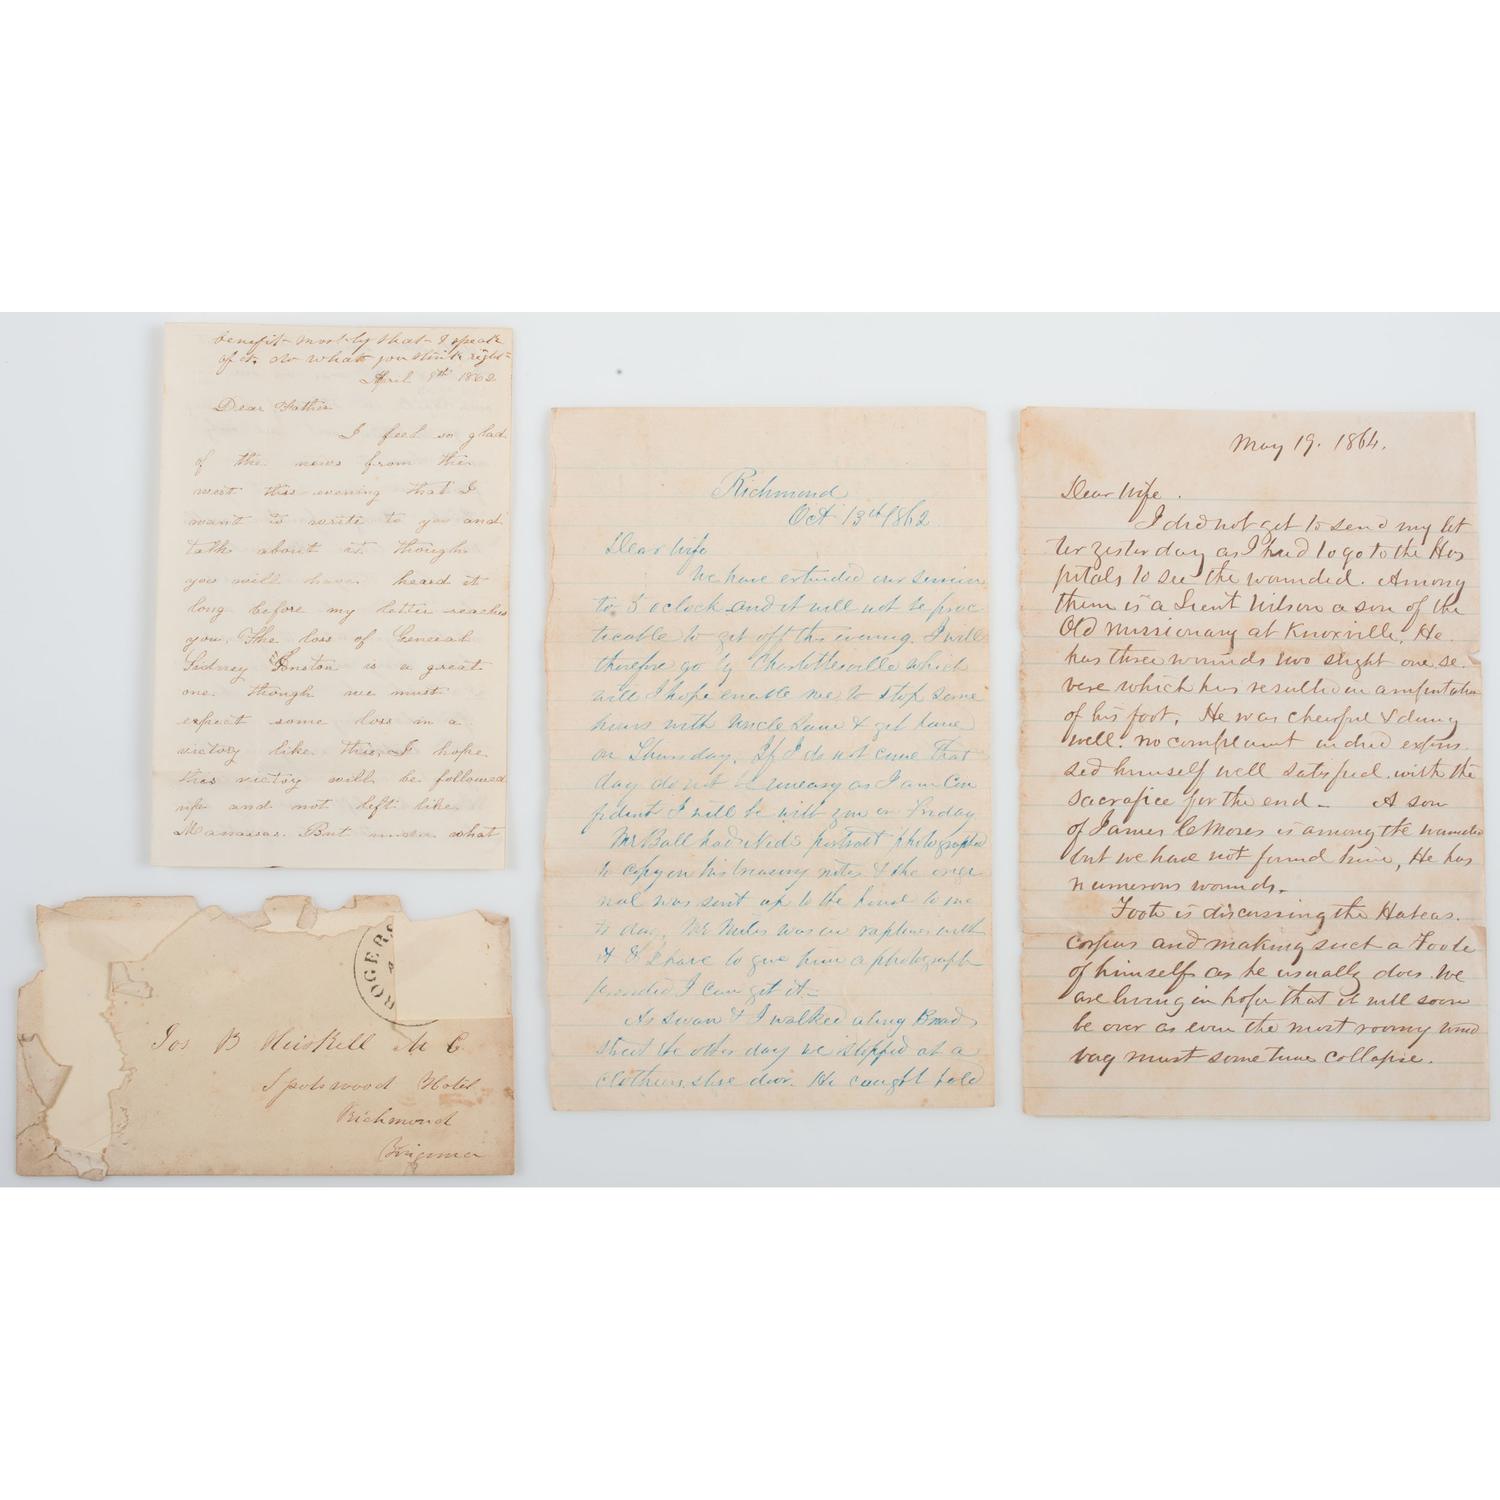 benefit mostly that I speak
of it. do what you think right
April 9th 1862
Dear Father
I feel so glad
of the news from the
west this evening that I
want to write to you and
talk about it though
you will have heard it
long before my letter reaches
you. The loss of General
Sidney Jonston is a great
one though we must
expect some loss in a
victory like this. I hope
this victory will be followed
up and not left like
Manassas. But what
ROGERS
Jos B Heiskell M C
Spotswood Hotel
Richmond
Virginia
Richmond
Oct 13th 1862
Dear Wife
We have extended our session
to 5 oclock and it will not be prac
ticable to get off this evening. I will
therefore go by Charlottesville which
will I hope enable me to stop some
hours with Uncle & get home
on Thursday. If I do not come that
day do not be uneasy as I am Con
fident I will be with you on Friday
Mr Ball had Neds portrait photographed
to copy on his treasury notes & the origi
nal was sent up to the house to me
to day. Mr Miles was in raptures with
it & I have to give him a photograph
provided I can get it –
As Swan & I walked along Broad
street the other day we stopped at a
clothiers store door. He caught hold
May 19. 1864.
Dear Wife.
I did not get to send my let
ter yesterday as I had to go to the Hos
pitals to see the wounded. Among
them is a Lieut Wilson a son of the
Old Missionary at Knoxville. He
has three wounds two slight one se.
vere which has resulted in amputation
of his foot. He was cheerful & doing
well. no complaint indeed expres
sed himself well satisfied with the
sacrafice for the end – A son
of James is among the wounded
but we have not found him, He has
numerous wounds.
Foote is discussing the Habeas.
corpus and making such a Foote
of himself as he usually does. We
are living in hope that it will soon
be over as even the most roomy wind
bag must some time collapse.